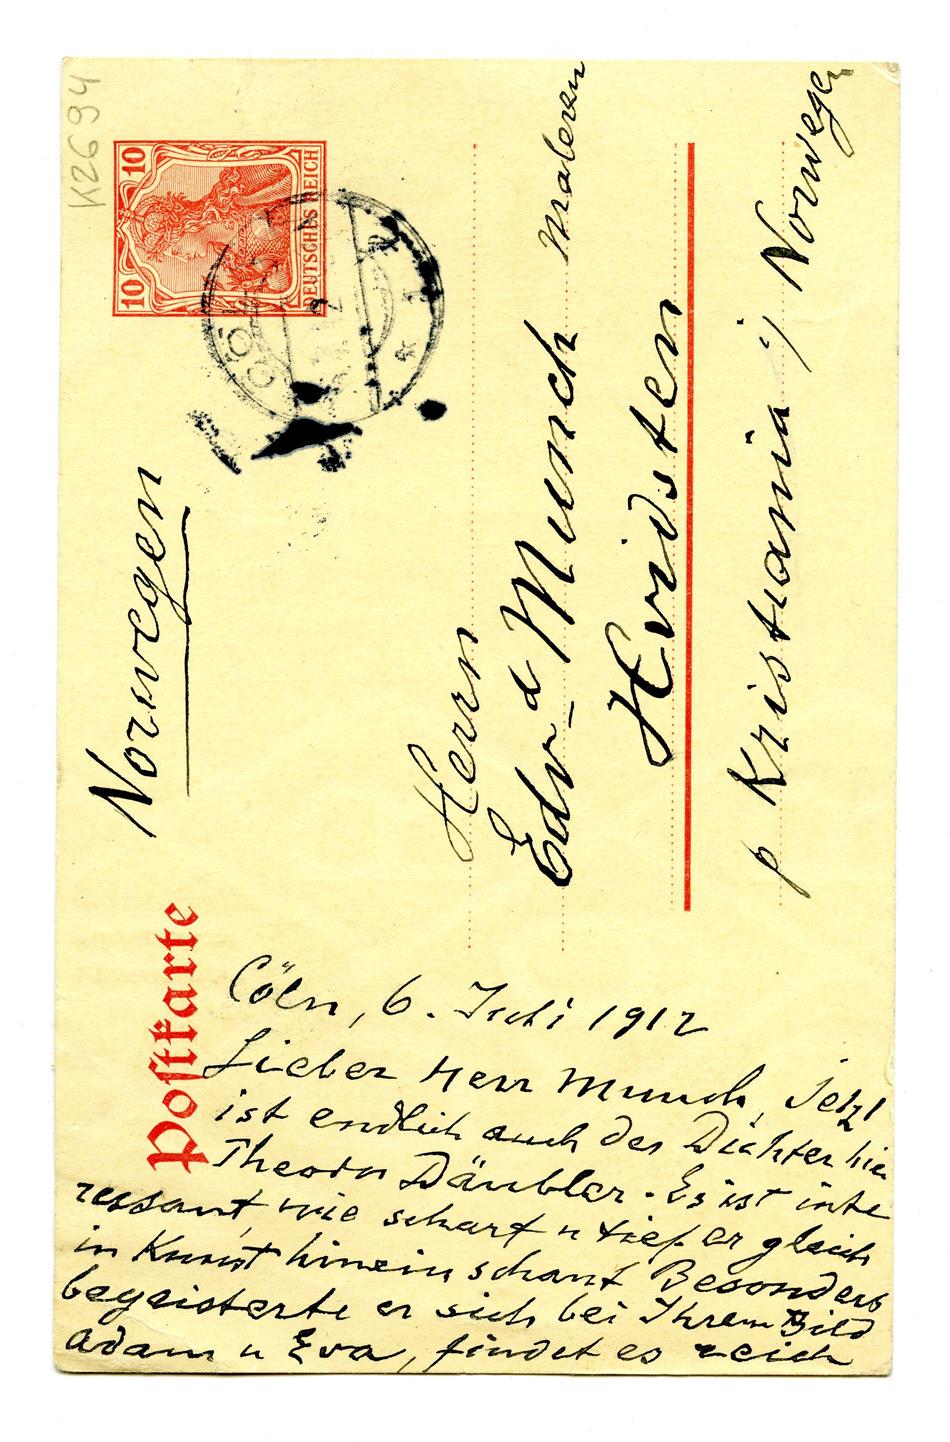 K2694
10 10
DEUTSCHES REICH
Postkarte
Norwegen
Herrn
Edv-d Munch Maleren
Hvidsten
p Kristiania i/ Norwegen
Cöln, 6. Juli 1912
Lieber Herr Munch, Jetzt
ist endlich auch der Dichter hier
Theodor Däubler. Es ist inte
ressant, wie scharf u tief er gleich
in Kunst hineinschaut Besonders
begeisterte er sich bei Ihrem Bild
Adam u Eva, findet es reich